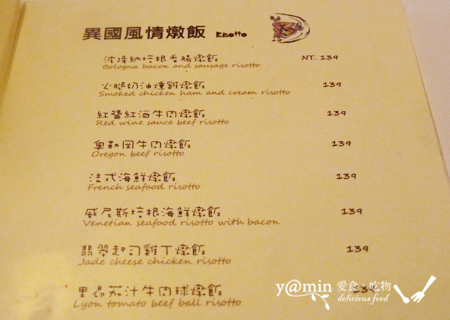 異國風情燉飯 Risotto
波隆納培根香腸燉飯 NT. 139
Bologna bacon and sausage risotto
火腿奶油燻雞燉飯 139
Smoked chicken ham and cream risotto
紅醬紅酒牛肉燉飯 139
Red wine sauce beef risotto
奧勒岡牛肉燉飯 139
Oregon beef risotto
法式海鮮燉飯 139
French seafood risotto
威尼斯培根海鮮燉飯 139
Venetian seafood risotto with bacon
翡翠起司雞丁燉飯 139
Jade cheese chicken risotto
里昂茄汁牛肉球燉飯
Lyon tomato beef ball risotto
y@min 愛食♥吃物
delicious food